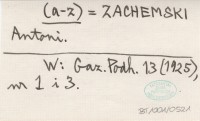 (a-z) = ZACHEMSKI
Antoni.
W: Gaz. Podh. 13 (1925),
nr 1 i 3.